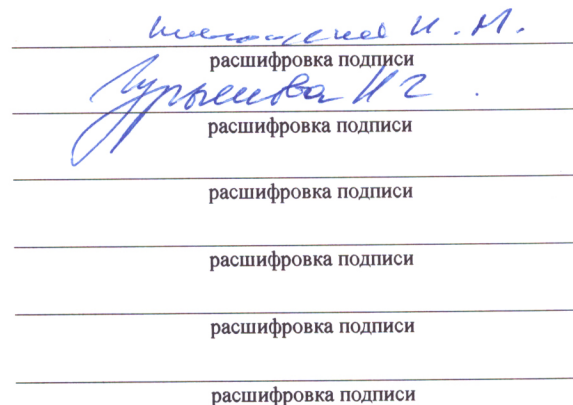 И. М.
расшифровка подписи
И Г.
расшифровка подписи
расшифровка подписи
расшифровка подписи
расшифровка подписи
расшифровка подписи